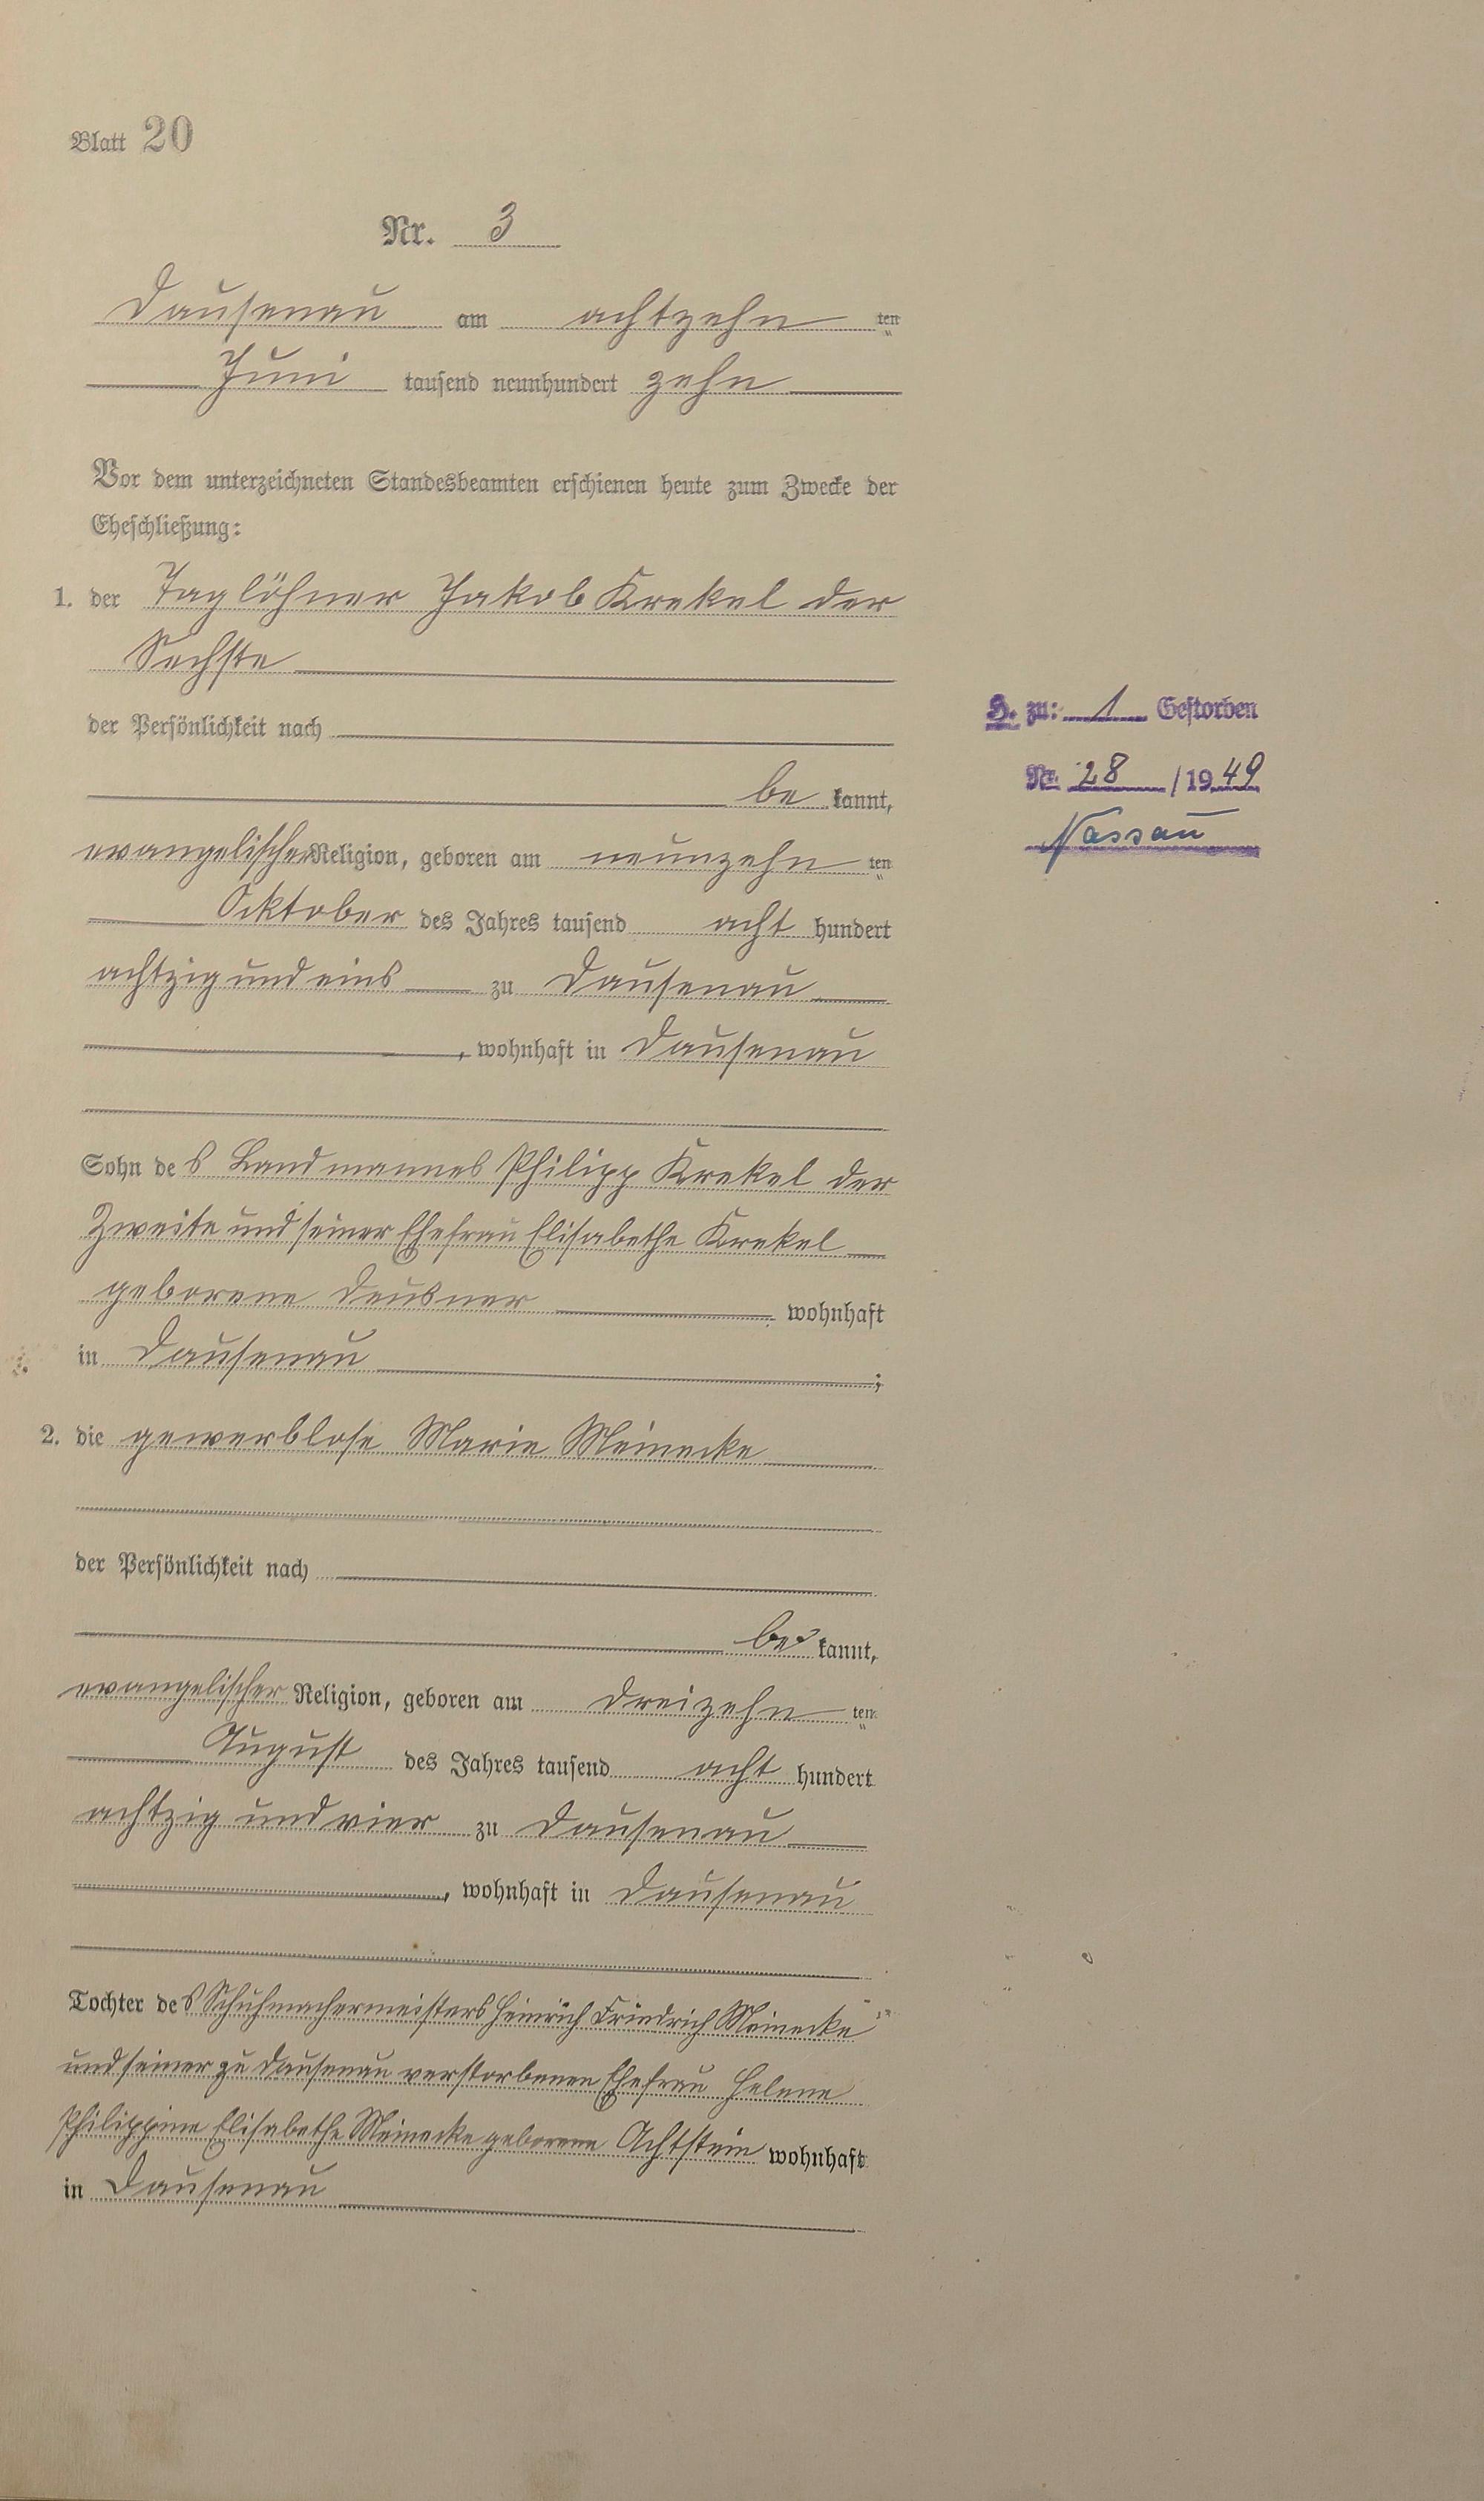 Blatt 20
Nr. 3
Dausenau am achtzehn ten
Juni tausend neunhundert zehn
Vor dem unterzeichneten Standesbeamten erschienen heute zum Zwecke der
Eheschließung:
1. der Taglöhner Jakob Krekel der
Sechste
der Persönlichkeit nach
be kannt,
evangelischer Religion, geboren am neunzehn ten
Ocktober des Jahres tausend acht hundert
achtzig und eins zu Dausenau
, wohnhaft in Dausenau
Sohn des Landmannes Philipp Krekel der
Zweite und seiner Ehefrau Elisabethe Krekel
geborene Deusner wohnhaft
in Dausenau ;
2. die gewerblose Marie Meinecke
der Persönlichkeit nach
be kannt,
evangelischer Religion, geboren am dreizehn ten
August des Jahres tausend acht hundert
achtzig und vier zu Dausenau
, wohnhaft in Dausenau
Tochter des Schuhmachermeisters Heinrich Friedrich Meinecke
und seiner zu Dausenau verstorbenen Ehefrau Helene
Philippine Elisabethe Meinecke geborene Achtstein wohnhaft
in Dausenau
H. zu: 1 Gestorben
Nr. 28 /1949
Nassau